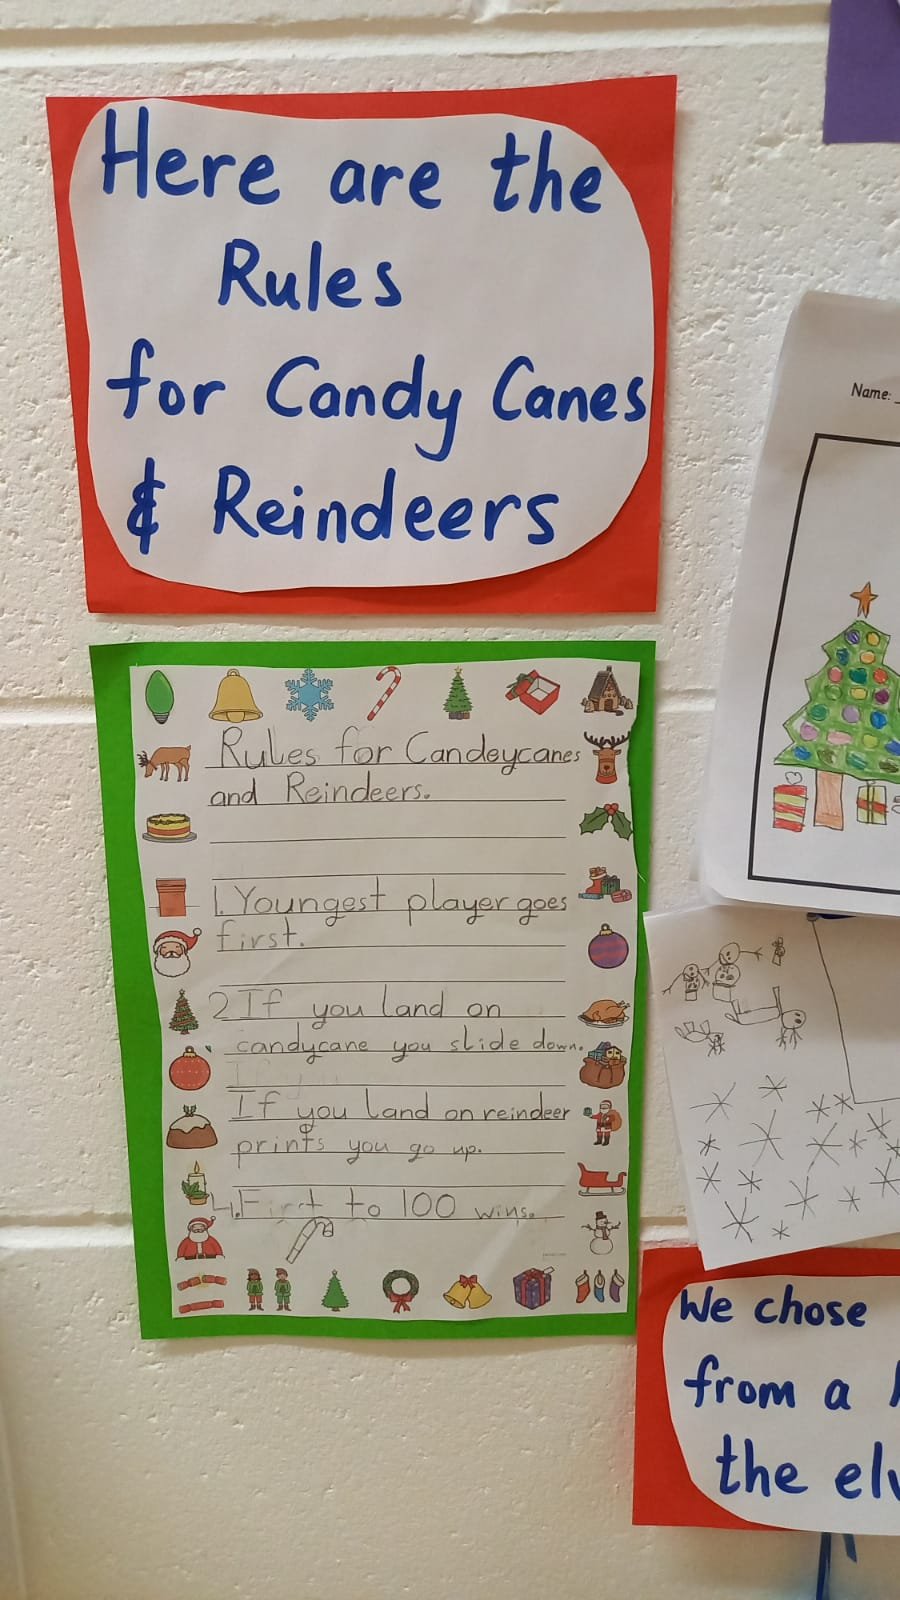 Here are the
Rules
for Candy Canes
& Reindeers
Rules for Candeycanes
and Reindeers.
1. Youngest player goes
first.
2 If you land on
candycane you slide down.
If you land on reindeer
prints you go up.
4. First to 100 wins.
Name:
We chose
from a
the